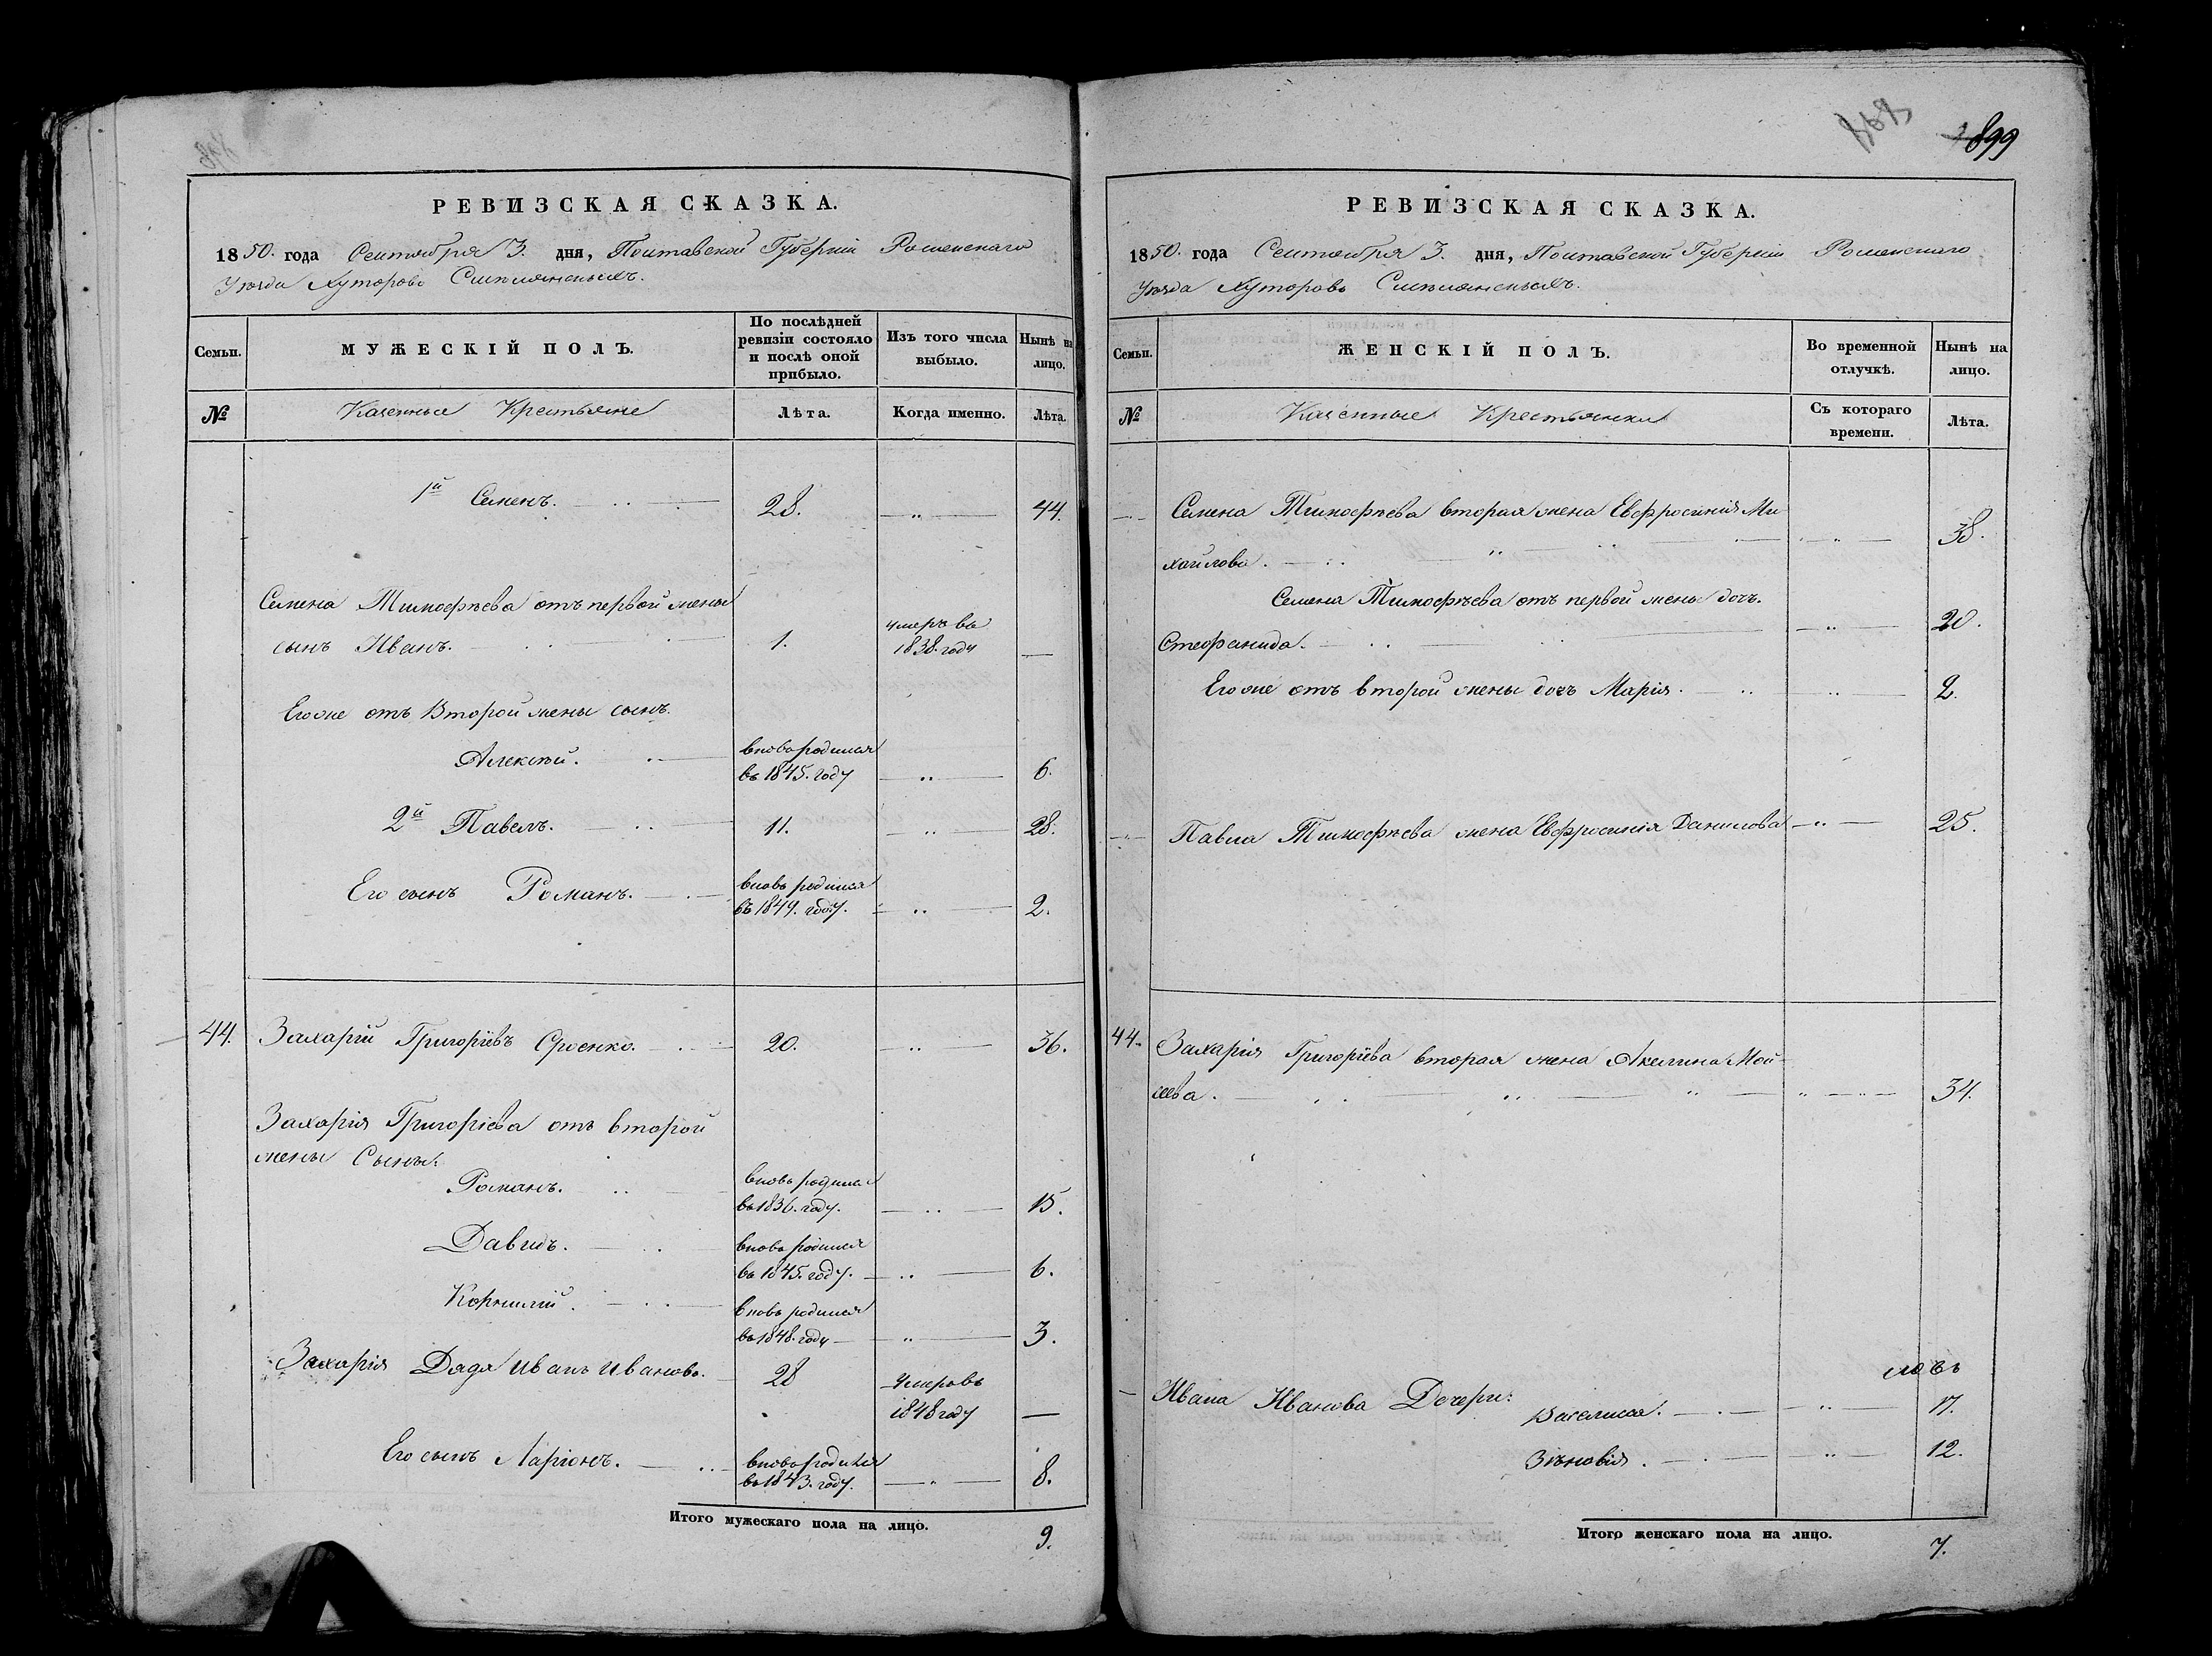 899
РЕВИЗСКАЯ СКАЗКА.
1850. года Сентября 3. дня, Полтавской Губерніи Роменскаго
Уѣзда Хуторовъ
Семьи.
МУЖЕСКІЙ ПОЛЪ.
По послѣдней ревизіи состояло и послѣ оной прибыло.
Изъ того числа выбыло.
Нынѣ на лицо.
№
Казенные Крестьяне
Лѣта.
Когда именно.
Лѣта.
1й Семенъ. 28. 44.
Семена Тимофѣева отъ первой жены
сынъ Иванъ. 1. умеръ въ 1838. году
Его же отъ Второй жены сынъ
Алексѣй. вновь родился въ 1845. году 6.
2й Павелъ. 11. 28.
Его сынъ Романъ. вновь родился въ 1849. году. 2.
44. Захарій Григоріевъ 20. 36.
Захарія Григоріева отъ второй
жены Сыны:
Романъ. вновь родился въ 1836. году. 15.
Давидъ. вновь родился въ 1845. году. 6.
Корнилій. вновь родился въ 1848. году 3.
Захарія Дядя Иванъ Ивановъ. 28 Умеръ въ 1848 году
Его сынъ Ларіонъ. вновь родился въ 1843. году. 8.
Итого мужескаго пола на лицо. 9.
РЕВИЗСКАЯ СКАЗКА.
1850. года Сентября 3. дня, Полтавской Губерніи Роменскаго
Уѣзда Хуторовъ
Семьи.
ЖЕНСКІЙ ПОЛЪ.
Во временной отлучкѣ.
Нынѣ на лицо.
№
Казенные Крестьянки
Съ котораго времени.
Лѣта.
Семена Тимофѣева вторая жена Евфросинія Ми
хайлова. 38.
Семена Тимофѣева отъ первой жены дочь.
Стефанида. 20.
Его же отъ второй жены дочь Марія. 2.
Павла Тимофѣева жена Евфросинія Данилова 25.
44. Захарія Григоріева вторая жена Акилина Мой
сеева. 34.
Ивана Иванова Дочери:
Василиса. 17.
Зѣновія. 12.
Итого женскаго пола на лицо. 7.